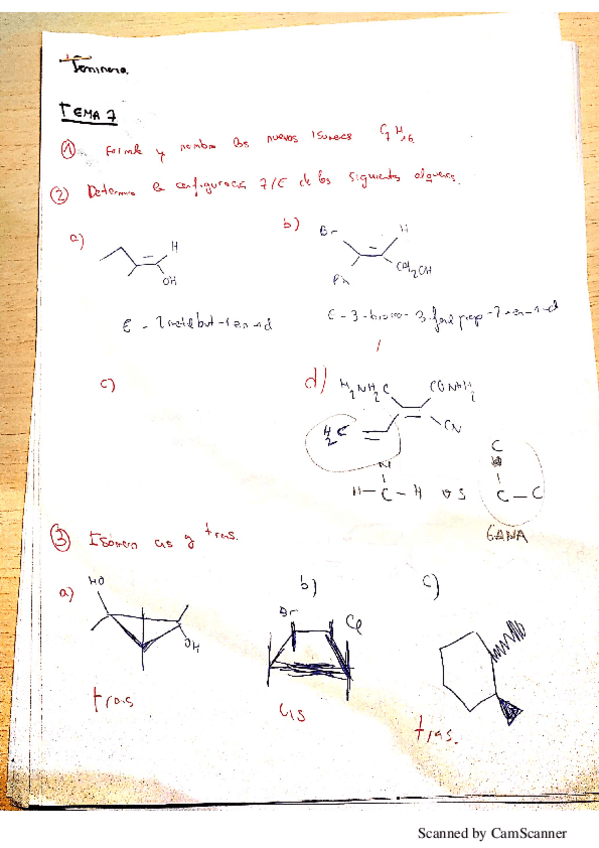 Seminario.
TEMA 7
① Formule y nombra los nuevos isómeros C7H16
② Determina la configuración Z/E de los siguientes alquenos.
a)
H
OH
b)
Br
H
CH2OH
Ph
E - 2 metil but - 1 en - 1 ol
E - 3 - bromo - 3 - fenil prop - 2 - en - 1 - ol
c)
d)
H2NH2C
CONH2
H2C
CN
N
H - C - H vs C - C
C
N
GANA
③ Isómero cis y tras.
a)
HO
OH
trais
b)
Br
Cl
cis
c)
tras.
Scanned by CamScanner